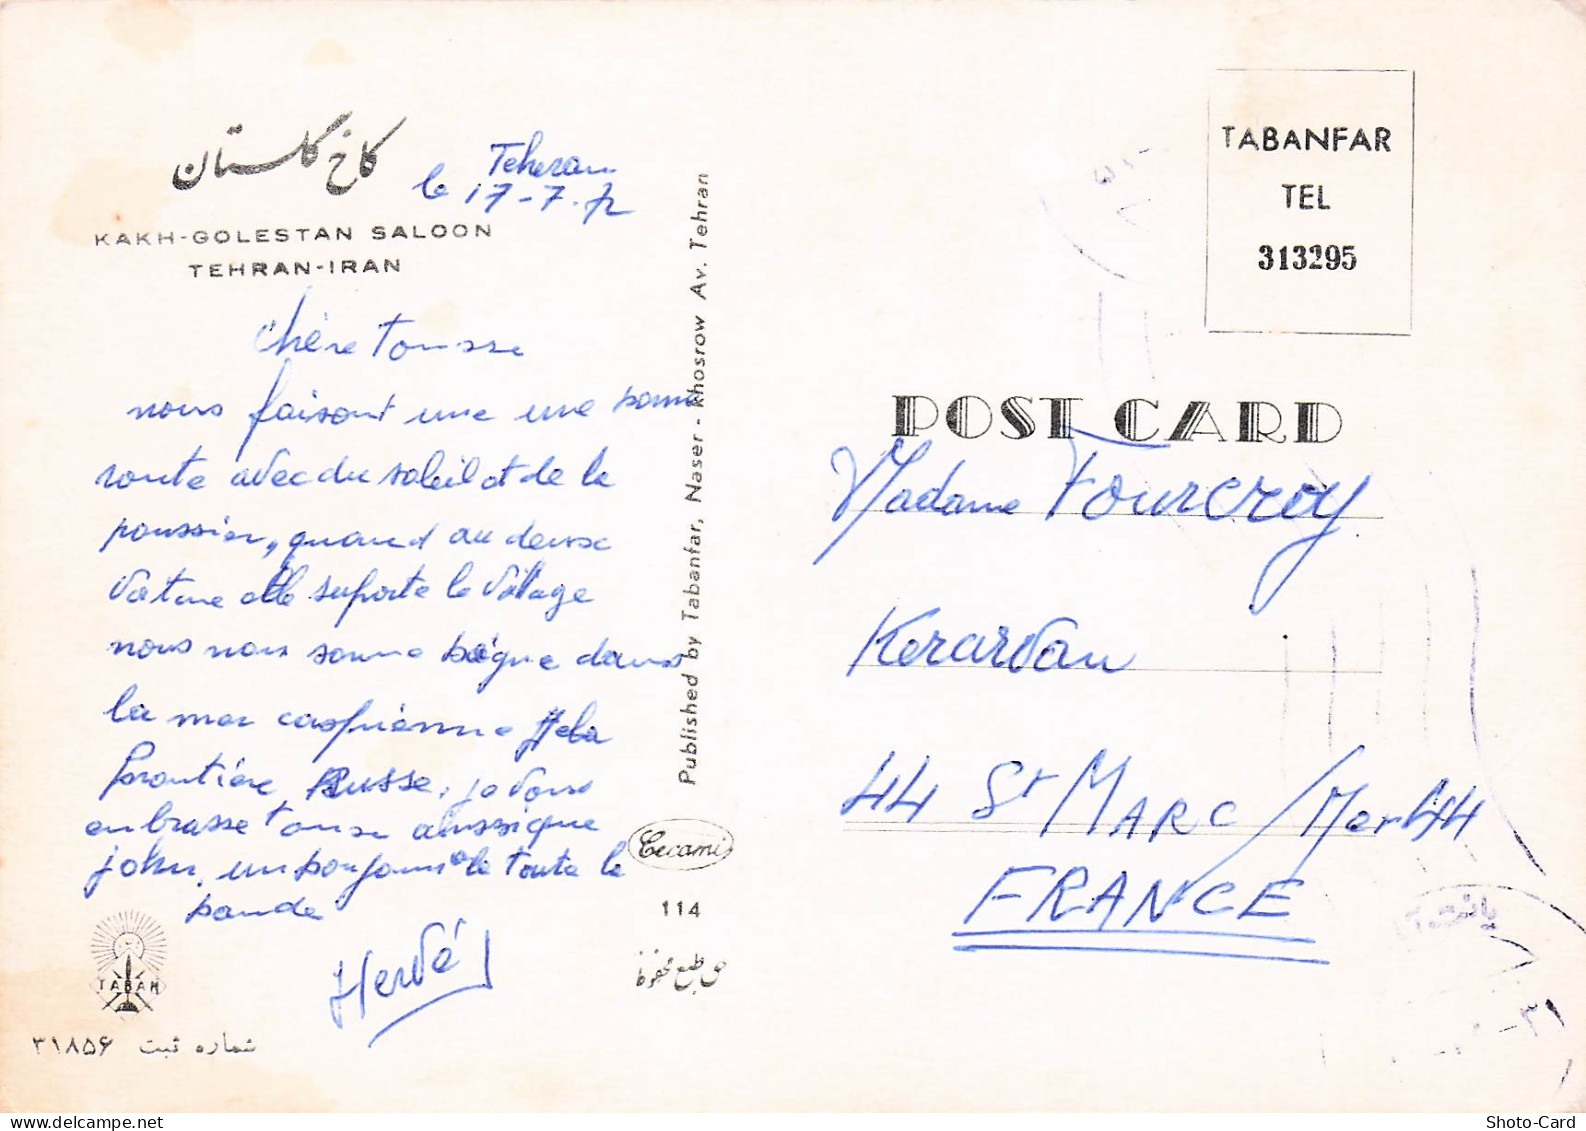 کاخ گلستان
KAKH-GOLESTAN SALOON
TEHRAN-IRAN
Teheran
le 17-7-72
Chère Tousse
nous faisont une une bonne
route avec du soleil et de la
poussier, quand au deuse
vature elle suporte le village
nous nous somme bégne dans
la mer caspiénne
frontière Russe, je vous
enbrasse tousse ainssique
john, un bonjour à toute la
bande
Hervé
TABAN
شماره ثبت ۳۱۸۵۶
Published by Tabanfar, Naser - Khosrow Av. Tehran
Cecami
114
حق طبع محفوظ
TABANFAR
TEL
313295
POST CARD
Madame Fourcroy
Kerardan
44 St MARC/Mer 44
FRANCE
Shoto-Card